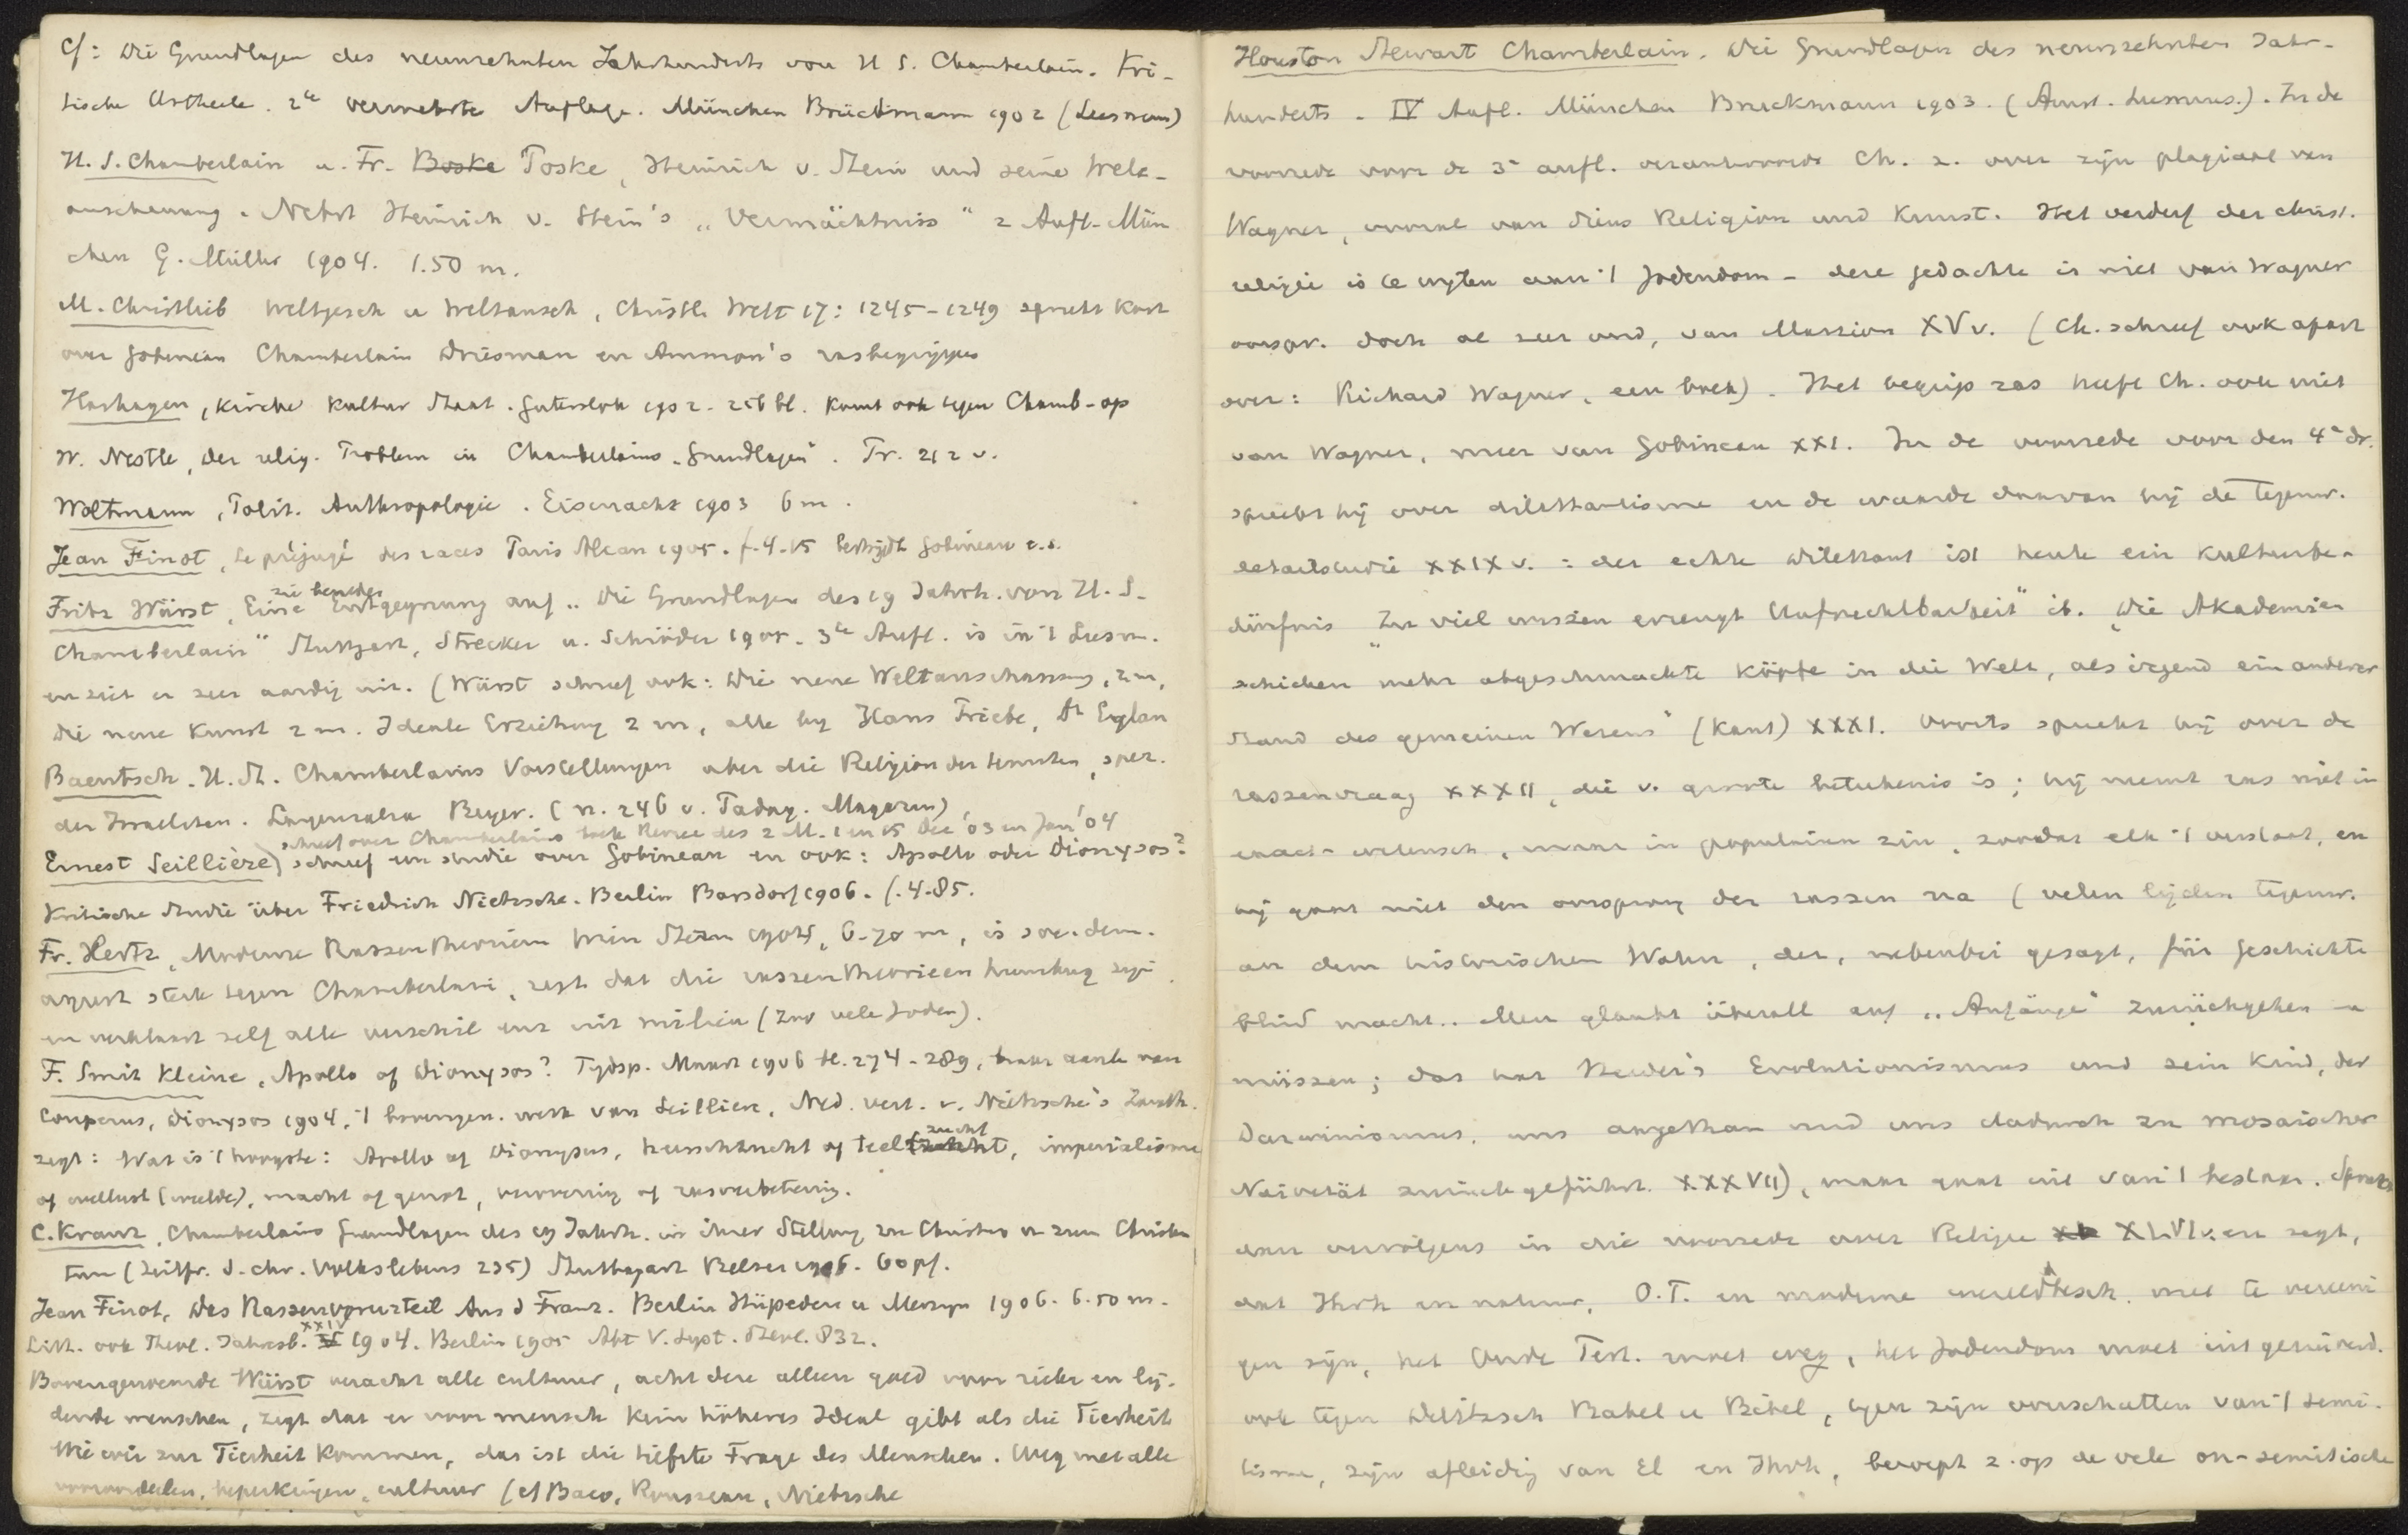 Cf: Die Grundlagen des neunzehnten Jahrhunderts von H S. Chamberlain. Kri-
tische Urtheile. 2te vermehrte Auflage. München Brückmann 1902 (Leesmus)
H. S. Chamberlain u. Fr. Boske Poske, Heinrich v. Stein und seine Welt-
anschauung. Nebst Heinrich v. Stein's „Vermächtniss" 2 Aufl. Mün
chen G. Müller 1904. 1.50 m.
M. Christlieb Weltgesch u Weltansch, Christl. Welt 17: 1245-1249 spreekt kort
over Gobineau Chamberlain Driesman en Ammon's rasbegrippen
Hashagen, Kirche Kultur Staat. Gütersloh 1902. 256 bl. komt ook tegen Chamb. op
W. Nestle, der relig. Problem in Chamberlains „Grundlagen". Pr. 212 v.
Woltmann, Polit. Anthropologie. Eisenach 1903 6 m.
Jean Finot, Le préjugé des races Paris Alcan 1905. f. 4.15 bestrijdt Gobineau e.a.
zu beneden
Fritz Wüst, Eine Entgegnung auf „Die Grundlagen des 19 Jahrh. von H. S.
Chamberlain" Stuttgart, Strecker u. Schröder 1905. 3te Aufl. is in 't Leesm.
en ziet er zeer aardig uit. (Wüst schreef ook: Die neue Weltanschauung, 2 m,
Die neue Kunst 2 m. Ideale Erziehung 2 m, alle by Hans Friebe, Dt Eylau
Baentsch. H. St. Chamberlains Vorstellungen über die Religion der Semiten, spez.
der Israeliten. Langensalza Beyer. (n. 246 v. Pädag. Magazin)
schreef over Chamberlains boek Revue des 2 M. 1 en 15 Dec '03 en Jan '04
Ernest Seillière) schreef een studie over Gobineau en ook: Apollo oder Dionysos?
Kritische Studie über Friedrich Nietzsche. Berlin Barsdorf 1906. f. 4.85.
Fr. Hertz, Moderne Rassentheorien Wien Stern 1904, 6.70 m, is soc. dem.
ageert sterk tegen Chamberlain, zegt dat die rassentheorieen humbug zijn
en verklaart zelf alle verschil enz uit milieu (zoo vele Joden).
F. Smit Kleine, Apollo of Dionysos? Tydsp. Maart 1906 bl. 274-289, naar aanl. van
Couperus, Dionysos 1904, 't bovengen. werk van Seillière, Ned. vert. v. Nietzsche's Zarath.
zucht
zegt: Wat is 't hoogste: Apollo of Dionysus, heerschzucht of teelt, imperialisme
of wellust (weelde), macht of genot, verovering of rasverbetering.
C. Kranz, Chamberlains Grundlagen des 19 Jahrh. in ihrer Stellung zu Christus u zum Christen
tum (Zeitfr. d. chr. Volkslebens 235) Stuttgart Belser 1906. 60 pf.
Jean Finot, Das Rassenvorurteil Aus d Franz. Berlin Hüpeden u Merzyn 1906. 6.50 m.
XXIV
Litt. ook Theol. Jahresb. 1904. Berlin 1905 Abt V. Syst. Theol. 832.
Bovengenoemde Wüst veracht alle cultuur, acht deze alleen goed voor zieke en lij-
dende menschen, zegt dat er voor mensch kein höheres Ideal gibt als die Tierheit
Wie wir zur Tierheit kommen, das ist die tiefste Frage des Menschen. Weg met alle
vooroordeelen, beperkingen, cultuur (cf Baco, Rousseau, Nietzsche
Houston Stewart Chamberlain. Die Grundlagen des neunzehnten Jahr-
hunderts. IV Aufl. München Bruckmann 1903. (Amst. Leesmus.). In de
voorrede voor de 3e aufl. verantwoordt Ch. z. over zijn plagiaat van
Wagner, vooral van diens Religion und Kunst. Het verderf der christ.
religie is te wyten aan 't Jodendom - deze gedachte is niet van Wagner
oorspr. doch al zeer oud, van Marcion XV v. (Ch. schreef ook apart
over: Richard Wagner, een boek). Het begrip ras heeft Ch. ook niet
van Wagner, meer van Gobineau XXI. In de voorrede voor den 4en dr.
spreekt hij over dilettantisme en de waarde daarvan bij de tegenw.
detailstudie XXIX v.: der echte Dilettant ist heute ein Kulturbe-
dürfnis „Zu viel wissen erzeugt Unfruchtbarkeit" ib. „Die Akademien
schicken mehr abgeschmackte Köpfe in die Welt, als irgend ein anderer
Stand des gemeinen Wesens" (Kant) XXXI. Voorts spreekt hij over de
rassenvraag XXXII, die v. groote beteekenis is; hij neemt ras niet in
exact-wetensch, maar in populairen zin, zoodat elk 't verstaat, en
hij gaat niet den oorsprong der rassen na (velen lijden tegenw.
an dem historischen Wahn, der, nebenbei gesagt, für Geschichte
blind macht.. Man glaubt überall auf „Anfänge" zurückgehen u
müssen; das hat Newer's Evolutionismus und sein Kind, der
Darwinismus, uns angethan und uns dadurch zu mosaischer
Naivetät zurückgeführt. XXXVII), maar gaat uit van 't bestaan. Spreekt
dan vervolgens in die voorrede over Religie XLVI v. en zegt,
dat Ihvh en natuur, O.T. en moderne wereldbesch. niet te vereeni
gen zijn, het Oude Test. moet weg, het Jodendom moet uitgezuiverd.
ook tegen Delitzsch Babel u Bibel, tegen zijn overschatten van 't Semi-
tisme, zijn afleiding van El en Ihvh, beroept z. op de vele on-semitische